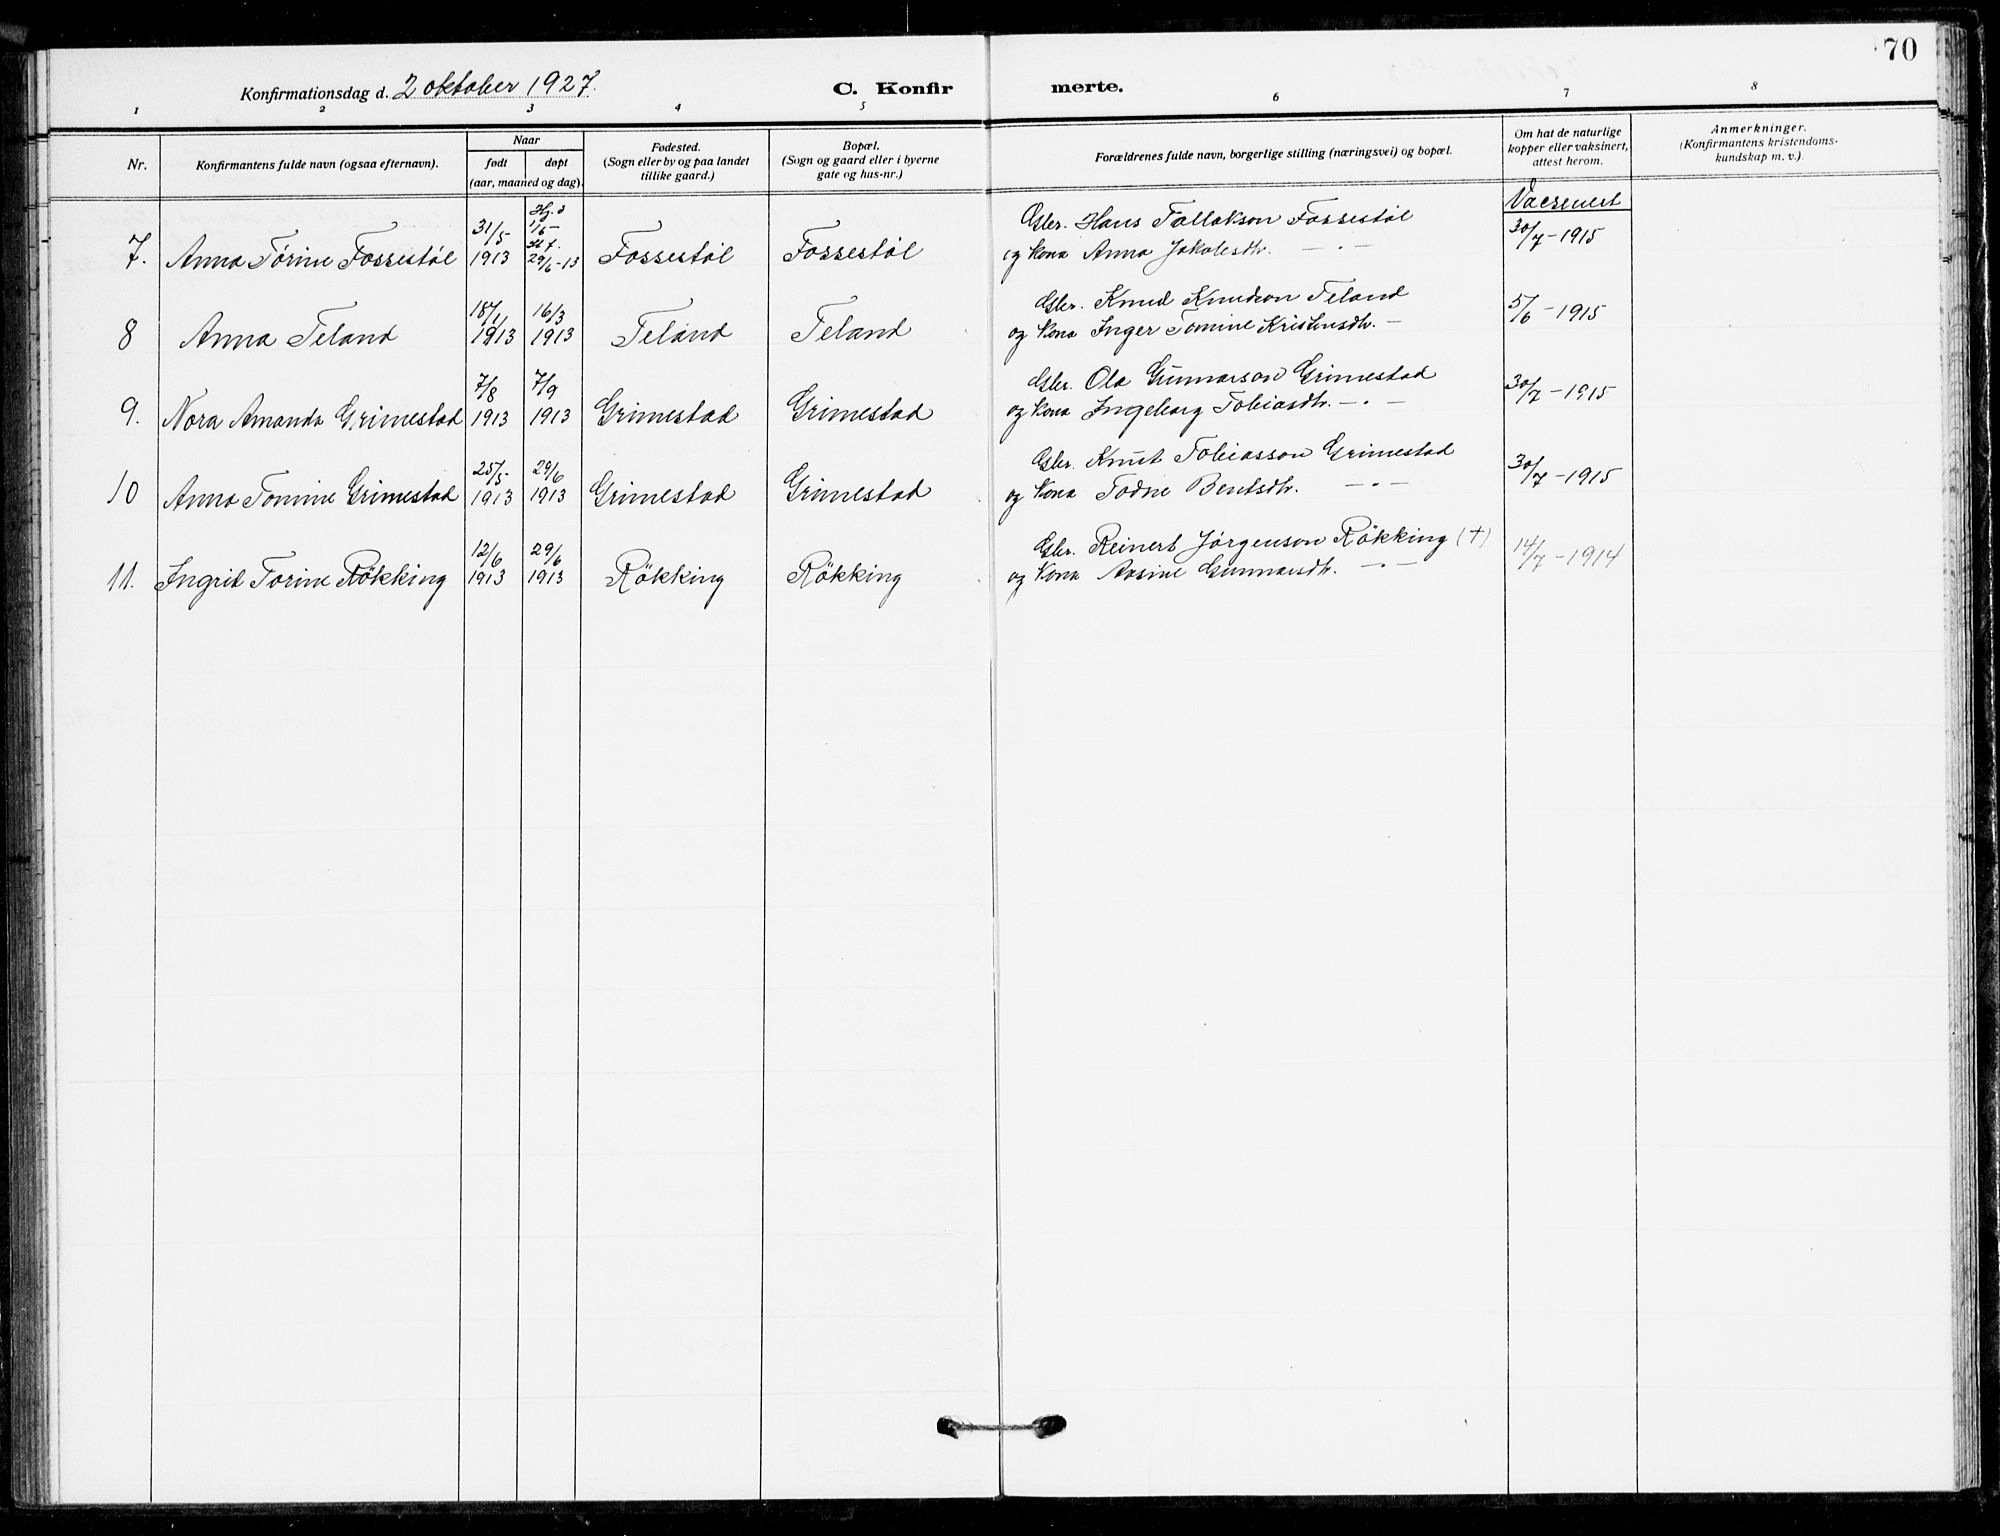 70
Konfirmationsdag d. 2 oktober 1927.
C. Konfir merte.
1 2 3 4 5 6 7 8
Nr.
Konfirmantens fulde navn (ogsaa efternavn).
Naar
født døpt
(aar, maaned og dag).
Fødested.
(Sogn eller by og paa landet
tillike gaard.)
Bopæl.
(Sogn og gaard eller i byerne
gate og hus-nr.)
Forældrenes fulde navn, borgerlige stilling (næringsvei) og bopæl.
Om hat de naturlige
kopper eller vaksinert,
attest herom.
Anmerkninger.
(Konfirmantens kristendoms-
kundskap m. v.).
Vacsenert
7. Anna Tørine Fossestøl 31/5 1913 Hj. d 1/6 st f. 29/6-13 Fossestøl Fossestøl
Gbr. Hans Tallakson Fossestøl
og kona Anna Jakobsdtr. — " — 30/7-1915
8 Anna Teland 18/1 1913 16/3 1913 Teland Teland
Gbr. Knud Knudson Teland
og kona Inger Tomine Kristensdtr. — 5/6-1915
9. Nora Amanda Grimestad 7/8 1913 7/9 1913 Grimestad Grimestad
Gbr. Ola Gunnarson Grimestad
og kona Ingeborg Tobiasdtr. — " — 30/7-1915
10 Anna Tomine Grimestad 25/5 1913 29/6 1913 Grimestad Grimestad
Gbr. Knut Tobiasson Grimestad
og kona Todne Bentsdtr. — " — 30/7-1915
11. Ingrid Torine Røkking 12/6 1913 29/6 1913 Røkking Røkking
Gbr. Reinert Jørgenson Røkking (+)
og kona Aasine Gunnarsdtr. — " — 14/7-1914